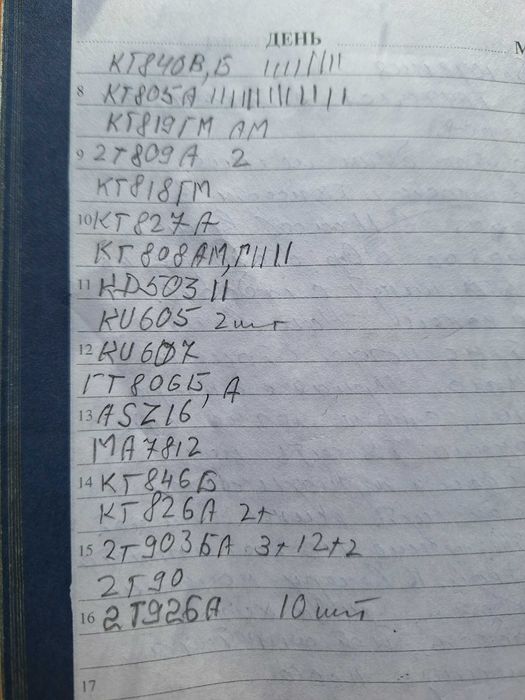 ДЕНЬ
КТ840В,Б ||||||||
8 КТ805А |||||||||||||
КТ819ГМ АМ
9 2Т809А 2
КТ818ГМ
10 КТ827А
КТ808АМ,Г|||||
11 KD503 ||
KU605 2шт
12 KU607
ГТ806Б, А
13 ASZ16
МА7812
14 КТ846Б
КТ826А 2+
15 2Т903БА 3+12+2
2Т90
16 2Т926А 10шт
17